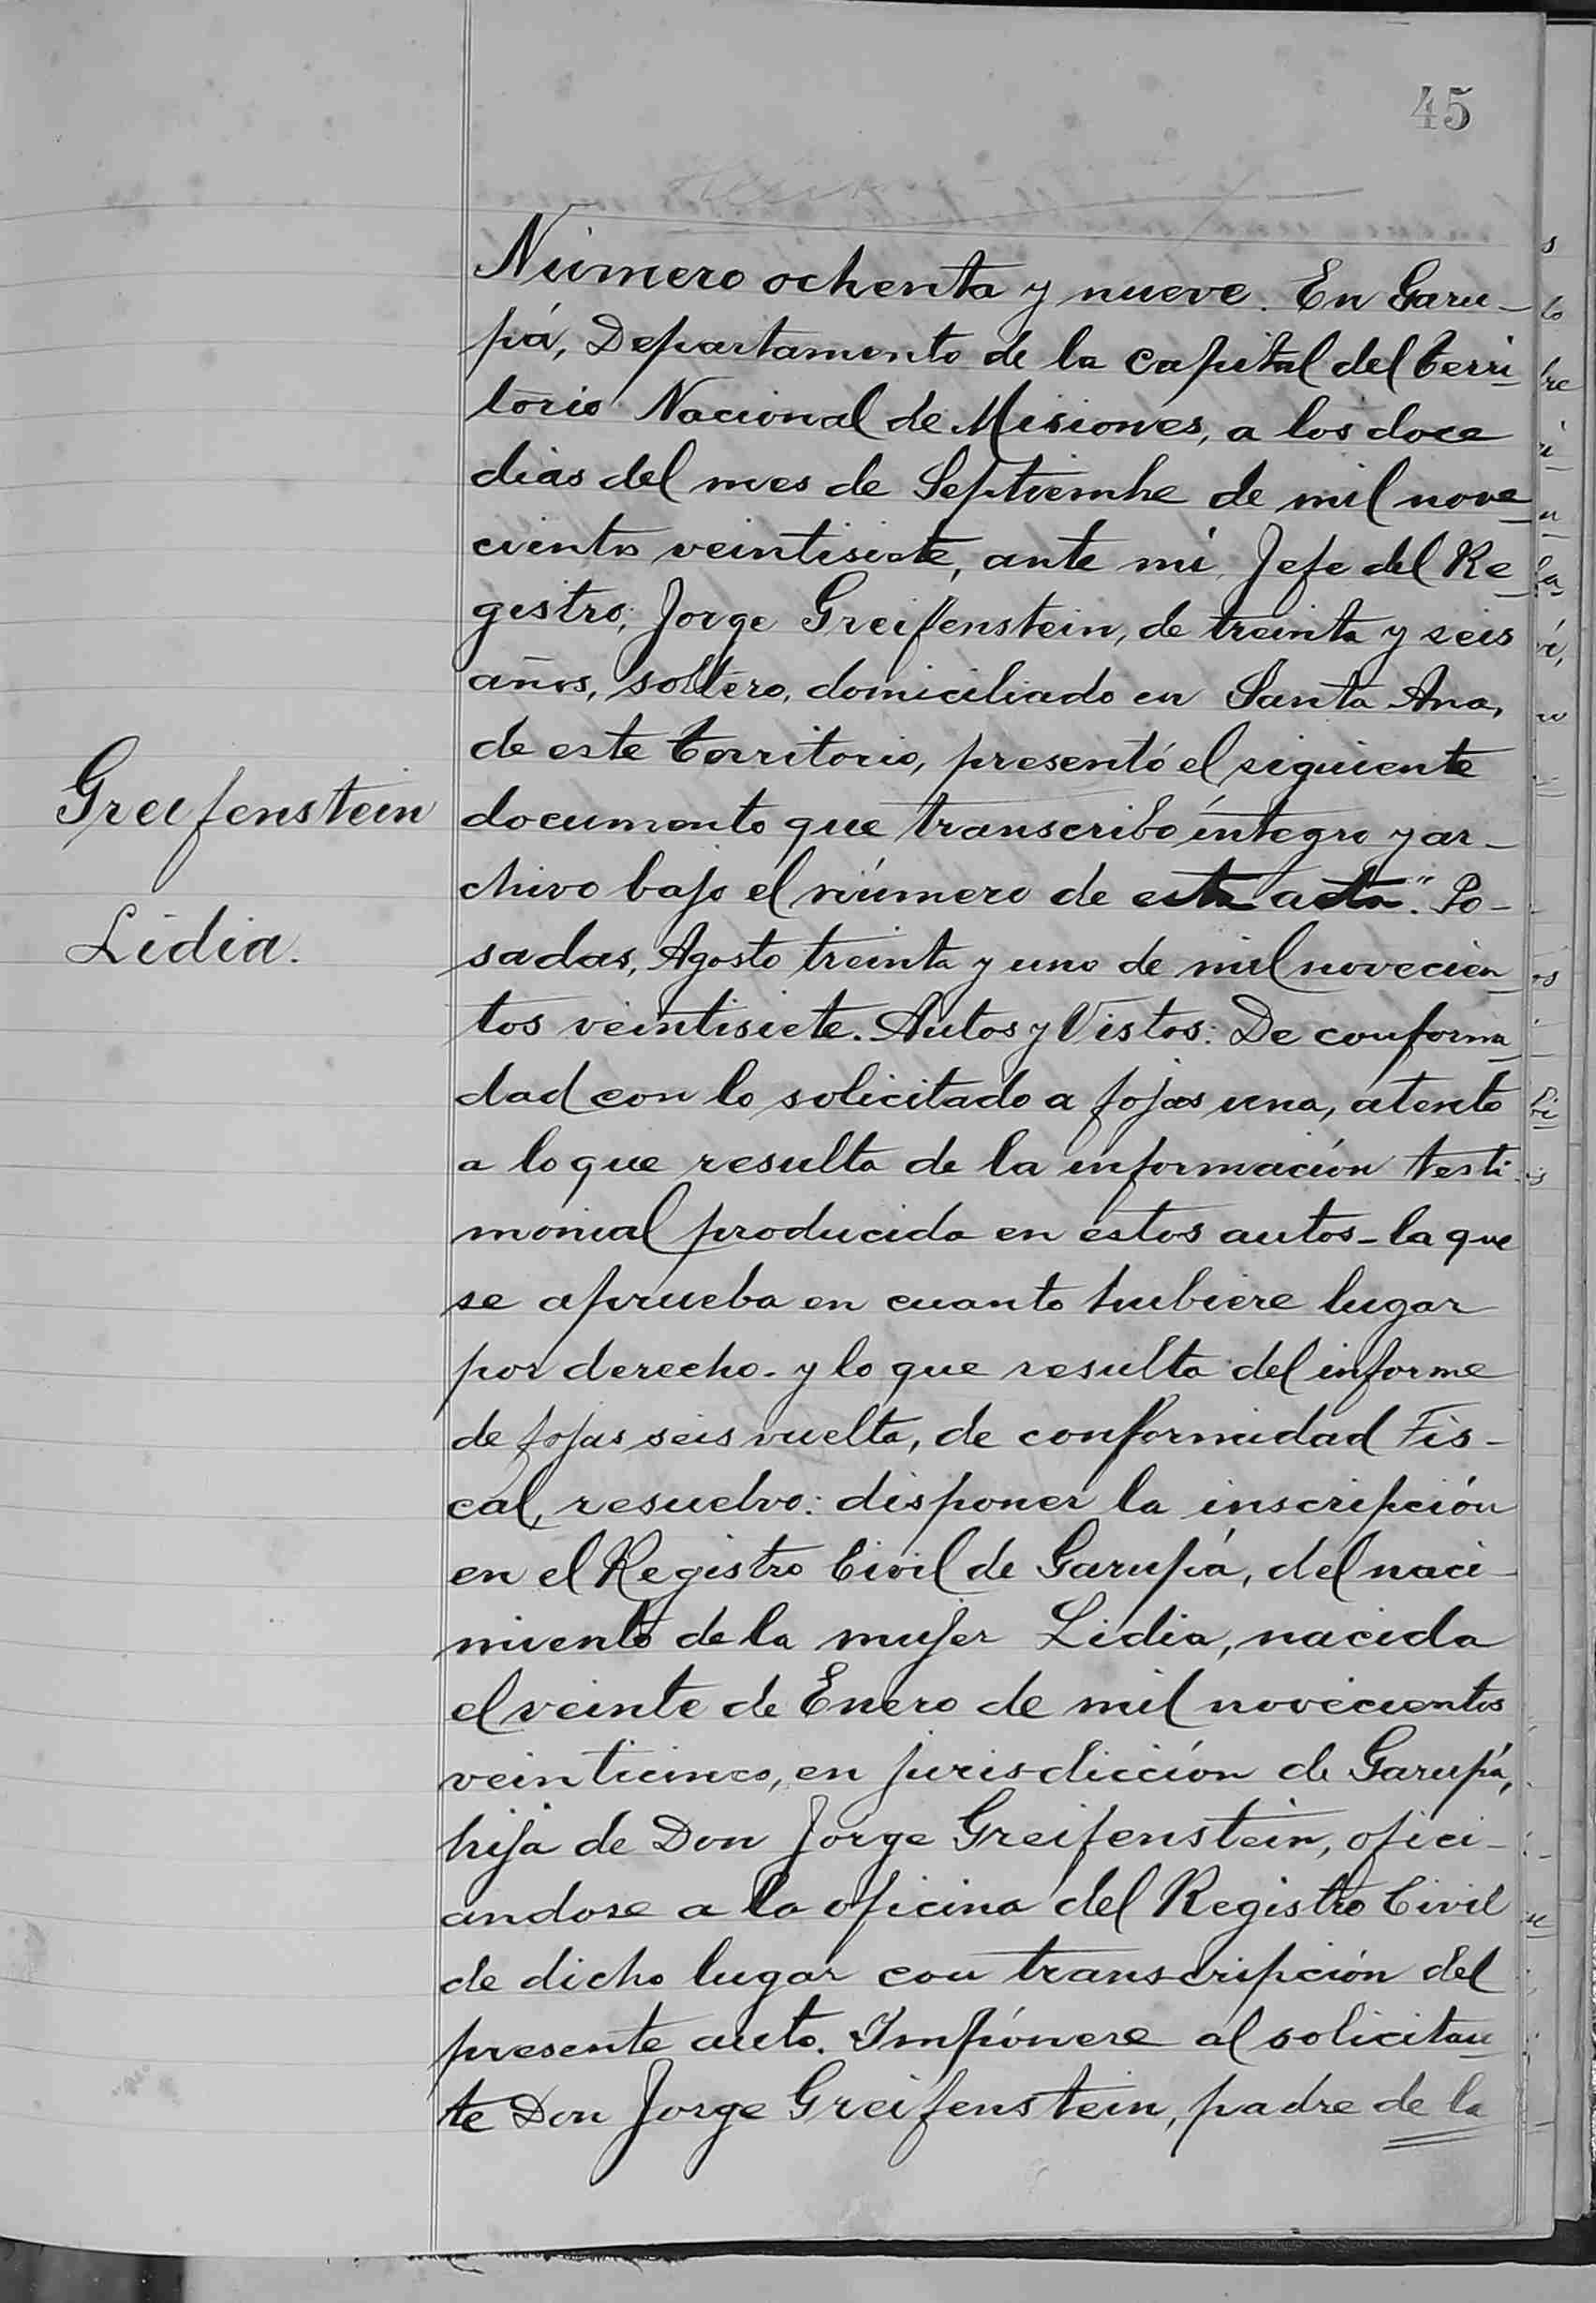 45
Número ochenta y nueve. En Garu-
pá, Departamento de la Capital del Terri-
torio Nacional de Misiones, a los doce
dias del mes de Septiembre de mil nove-
cientos veintisiete, ante mi Jefe del Re-
gistro, Jorge Greifenstein, de treinta y seis
años, soltero, domiciliado en Santa Ana,
de este Territorio, presentó el siguiente
Greifenstein
documento que transcribo íntegro y ar-
chivo bajo el número de esta acta." Po-
Lidia.
sadas, Agosto treinta y uno de mil novecien-
tos veintisiete. Autos y Vistos: De conformi-
dad con lo solicitado a fojas una, atento
a lo que resulta de la información testi-
monial producida en estos autos - la que
se aprueba en cuanto hubiere lugar
por derecho - y lo que resulta del informe
de fojas seis vuelta, de conformidad Fis-
cal, resuelvo: disponer la inscripción
en el Registro Civil de Garupá, del naci-
miento de la mujer Lidia, nacida
el veinte de Enero de mil novecientos
veinticinco, en jurisdicción de Garupá,
hija de Don Jorge Greifenstein, ofici-
andose a la oficina del Registro Civil
de dicho lugar con transcripción del
presente auto. Impónese al solicitan-
te Don Jorge Greifenstein, padre de la